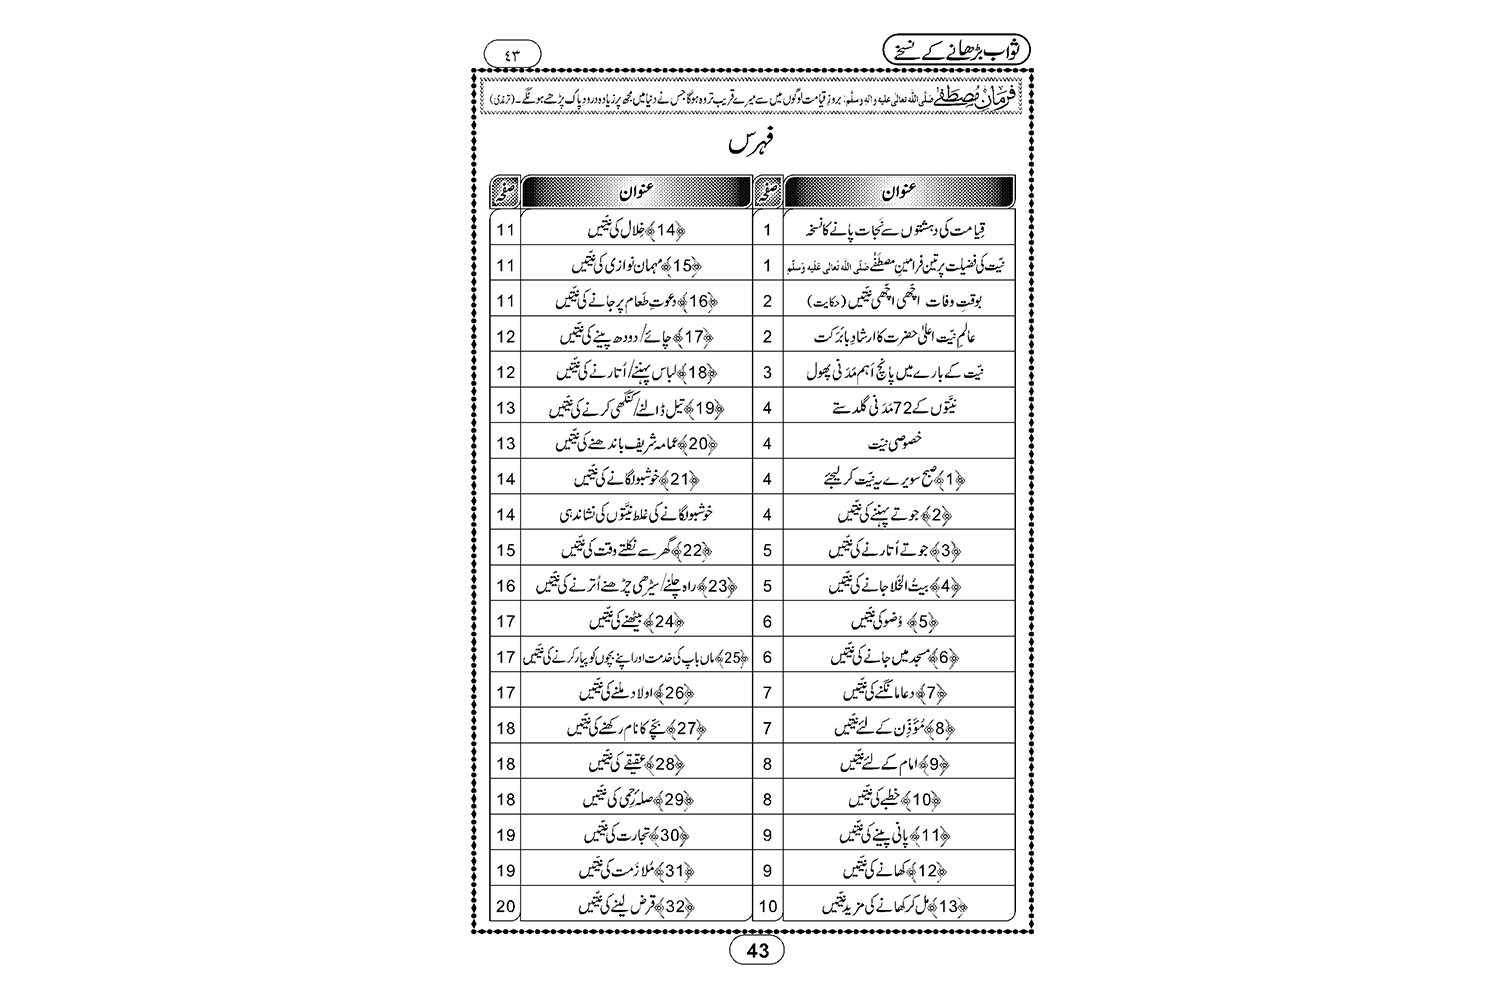 ثواب بڑھانے کے نسخے
٤٣
فرمانِ مُصطَفٰے صلَّی اللہ تعالٰی علیہ واٰلہ وسلَّم: بروزِ قیامت لوگوں میں سے میرے قریب تر وہ ہوگا جس نے دنیا میں مجھ پر زیادہ درود پاک پڑھے ہونگے۔ (ترمذی)
فہرس
عنوان صفحہ عنوان صفحہ
قِیامت کی دہشتوں سے نَجات پانے کا نسخہ 1 ﴿14﴾ خِلال کی نیّتیں 11
نیّت کی فضیلت پر تین فرامینِ مصطَفٰے صَلَّی اللہ تَعَالٰی عَلَیہِ وَسَلَّم 1 ﴿15﴾ مہمان نوازی کی نیّتیں 11
بوقتِ وفات اچّھی اچّھی نیّتیں (حکایت) 2 ﴿16﴾ دعوتِ طَعام پر جانے کی نیّتیں 11
عالمِ نیّت اعلیٰ حضرت کا ارشادِ بابَرَکت 2 ﴿17﴾ چائے/دودھ پینے کی نیّتیں 12
نیّت کے بارے میں پانچ اَہم مَدَنی پھول 3 ﴿18﴾ لباس پہننے/اُتارنے کی نیّتیں 12
نیَّتوں کے 72 مَدَنی گلدستے 4 ﴿19﴾ تیل ڈالنے/کنگھی کرنے کی نیّتیں 13
خصوصی نیّت 4 ﴿20﴾ عمامہ شریف باندھنے کی نیّتیں 13
﴿1﴾ صبح سویرے یہ نیّت کرلیجئے 4 ﴿21﴾ خوشبو لگانے کی نیّتیں 14
﴿2﴾ جوتے پہننے کی نیّتیں 4 خوشبو لگانے کی غلط نیَّتوں کی نشاندہی 14
﴿3﴾ جوتے اُتارنے کی نیّتیں 5 ﴿22﴾ گھر سے نکلتے وقت کی نیّتیں 15
﴿4﴾ بیتُ الخَلا جانے کی نیّتیں 5 ﴿23﴾ راہ چلنے/سیڑھی چڑھنے اُترنے کی نیّتیں 16
﴿5﴾ وُضو کی نیّتیں 6 ﴿24﴾ بیٹھنے کی نیّتیں 17
﴿6﴾ مسجد میں جانے کی نیّتیں 6 ﴿25﴾ ماں باپ کی خدمت اور اپنے بچوں کو پیار کرنے کی نیّتیں 17
﴿7﴾ دعا مانگنے کی نیّتیں 7 ﴿26﴾ اولاد ملنے کی نیّتیں 17
﴿8﴾ مُؤَذِّن کے لئے نیّتیں 7 ﴿27﴾ بچّے کا نام رکھنے کی نیّتیں 18
﴿9﴾ امام کے لئے نیّتیں 8 ﴿28﴾ عقیقے کی نیّتیں 18
﴿10﴾ خطبے کی نیّتیں 8 ﴿29﴾ صلۂ رَحمی کی نیّتیں 18
﴿11﴾ پانی پینے کی نیّتیں 9 ﴿30﴾ تجارت کی نیّتیں 19
﴿12﴾ کھانے کی نیّتیں 9 ﴿31﴾ مُلازَمت کی نیّتیں 19
﴿13﴾ مل کر کھانے کی مزید نیّتیں 10 ﴿32﴾ قرض لینے کی نیّتیں 20
43